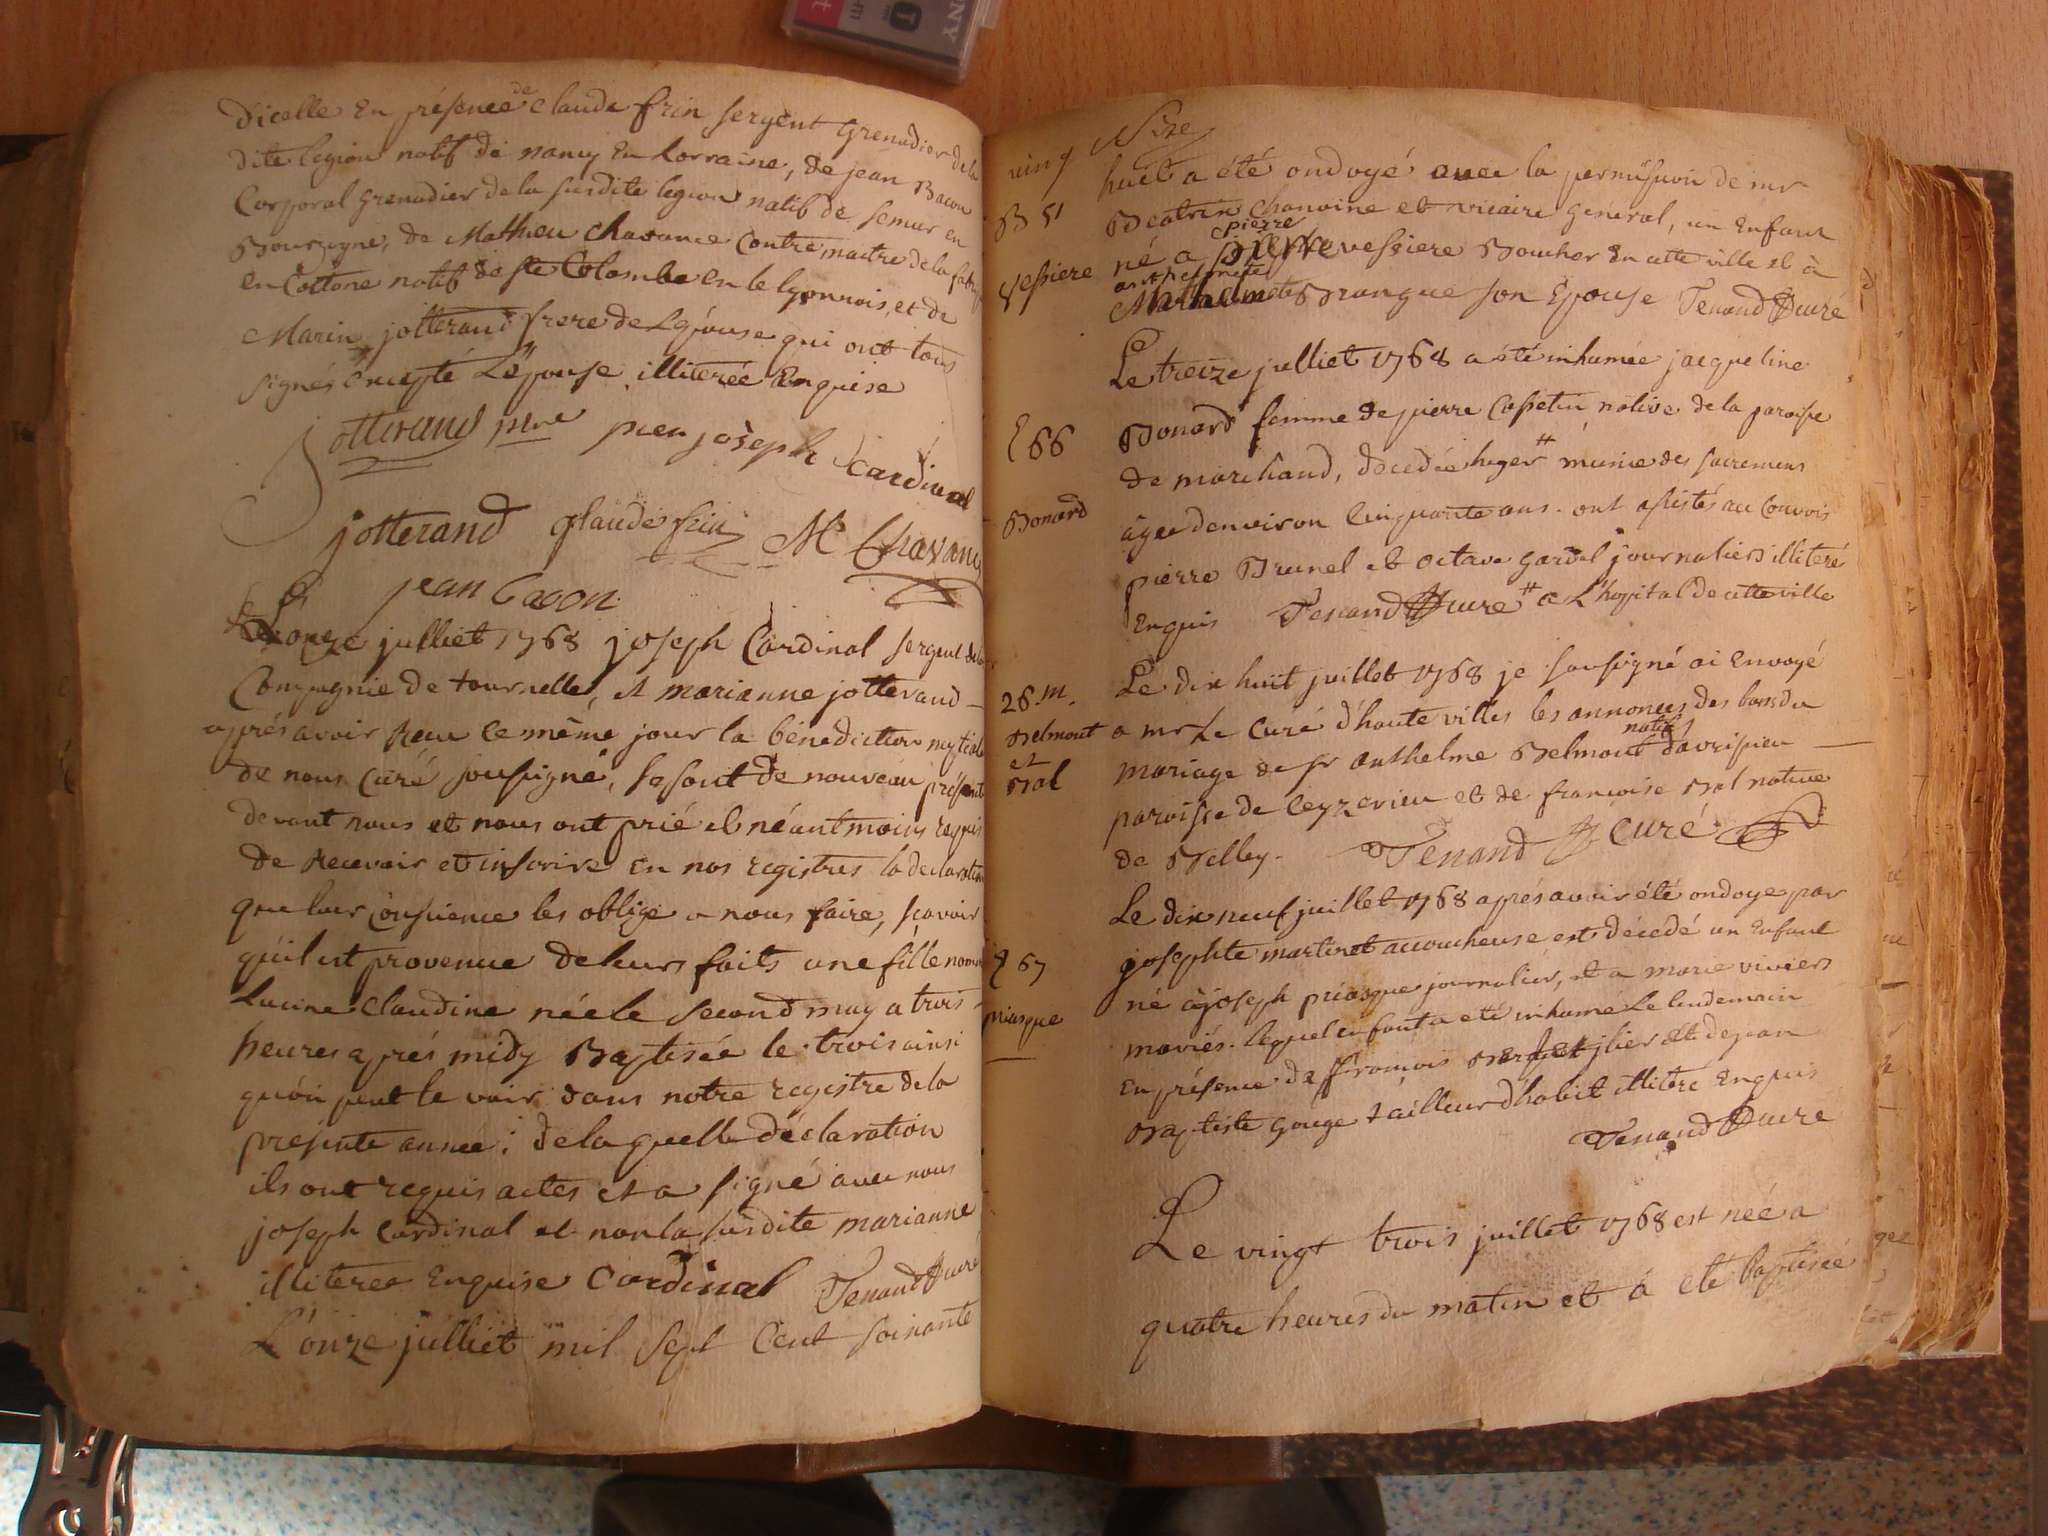 dicelle En présence de Claude frin sergent Grenadier de la
dite legion natif de nancy En Lorraine, de jean Bacon
Corporal Grenadier de la susdite legion natif de semur en
Bourgogne, de Mathieu Chavance Contre maitre de la
en Cottone natif de ste Colombe en le lyonnois, et de
Marin jotterand frere de Lepouse qui ont tous
signés Excepté Lépouse illiterée Enquise
jotterand pierre joseph Cardinal
jotterand glaude frin M Chavance
jean bacon
Le onze julliet 1768 joseph Cardinal sergent de la
Compagnie de tournelle, et marianne jotterand
aprés avoir Receu ce même jour la bénédiction nuptiale
de nous Curé soussigné, se sont de nouveau présentés
devant nous et nous ont prié et néantmoins requis
de Recevoir et inscrire en nos registres la declaration
que leur Conscience les oblige a nous faire, scavoir
qu'il est provenue de leurs faits une fille nommée
Lucine Claudine née le second may a trois
heures aprés midy Baptisée le trois ainsi
qu'on peut le voir dans notre registre de la
presente année; de laquelle déclaration
ils ont requis actes et a signé avec nous
joseph Cardinal et non la susdite marianne
illiteree Enquise Cardinal Tenand Curé
L'onze julliet mil sept Cent soixante
huit a été ondoyé avec la permission de mr
B 51
Beatrix Chanoine et vicaire général, un Enfant
pierre
vessiere
né a pierre vessiere Boucher En cette ville et à
anthelmete
Brangue son Epouse Tenand Curé
Le treize julliet 1768 a été inhumée jacqueline
E 66
Bonard femme de pierre Cossetin native de la paroisse
de marchand, décedée hyer # munie des sacremens
Bonard
âgée denviron Cinquante ans. ont assistés au Convois
pierre Brunel et octave gardel journaliers illiteré
Enquis Tenand Curé # a L'hopital de cette ville
Le dix huit juillet 1768 je soussigné ai Envoyé
28.m.
Belmont
et
Bal
a mr Le Curé d'haute villes les annonces des bans du
natif
mariage de sr anthelme Belmont davrissieu
paroisse de Ceyzerieu et de françoise Bal native
de Belley. Tenand Curé
Le dix neuf juillet 1768 aprés avoir été ondoye par
josephte martinet accoucheuse est décedé un Enfant
E 67
né à joseph priasque journalier, et a marie viviers
priasque
mariés. lequel enfant a eté inhumé Le lendemain
En présence de françois et de jean
Baptiste gouge tailleur d'habit illitere Enquis
Tenand Curé
Le vingt trois juillet 1768 est née a
quatre heures du matin et à eté baptisée